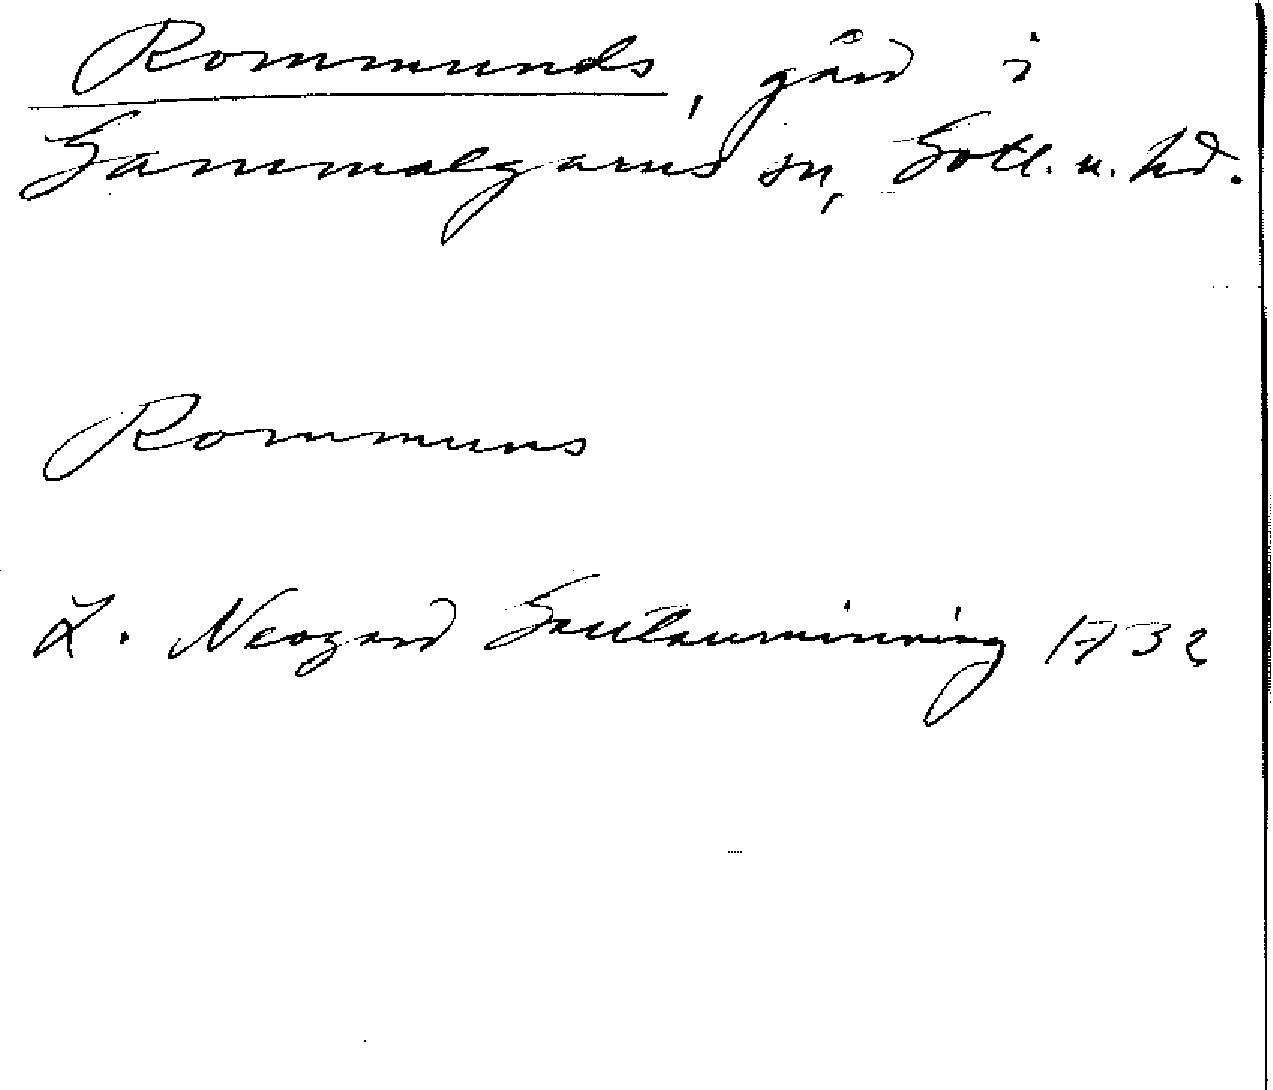 Rommunds, gård i
Gammalgarns sn, Gotl. n. hd.
Rommuns
L. Neogard Gautauminning 1732